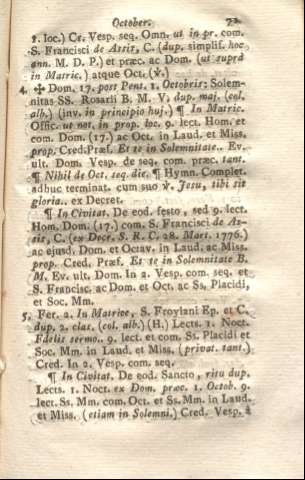 October. 73
2. loc.) Cr. Vesp. seq. Omn. ut in pr. com.
S. Francisci de Assis, C. (dup. simplif. hoc
ann. M. D. P.) et præc. ac Dom. (ut suprà
in Matric.) atque Oct. (℣.)
4. ✠ Dom. 17. post Pent. 1. Octobris: Solem-
nitas SS. Rosarii B. M. V. dup. maj. (col.
alb.) (inv. in principio huj.) ¶ In Matric.
Offic. ut not. in prop. loc. 9. lect. Hom. et
com. Dom. (17.) ac Oct. in Laud. et Miss.
prop. Cred. Præf. Et te in Solemnitate.. Ev.
ult. Dom. Vesp. de seq. com. præc. tant.
¶ Nihil de Oct. seq. die. ¶ Hymn. Complet.
adhuc terminat. cum suo ℣. Jesu, tibi sit
gloria.. ex Decret.
¶ In Civitat. De eod. festo, sed 9. lect.
Hom. Dom. (17.) com. S. Francisci de As-
sis, C. (ex Decr. S. R. C. 28. Mart. 1776.)
ac ejusd. Dom. et Octav. in Laud. ac Miss.
prop. Cred. Præf. Et te in Solemnitate B.
M. Ev. ult. Dom. In 2. Vesp. com. seq. et
S. Francisc. ac Dom. et Oct. ac Ss. Placidi,
et Soc. Mm.
5. Fer. 2. In Matrice, S. Froylani Ep. et C.
dup. 2. clas. (col. alb.) (H.) Lects. 1. Noct.
Fdelis sermo.. 9. lect. et com. Ss. Placidi et
Soc. Mm. in Laud. et Miss. (privat. tant.)
Cred. In 2. Vesp. com. seq.
¶ In Civitat. De eod. Sancto, ritu dup.
Lects. 1. Noct. ex Dom. præc. 1. Octob. 9.
lect. Ss. Mm. com. Oct. et Ss. Mm. in Laud.
et Miss. (etiam in Solemni.) Cred. Vesp. à